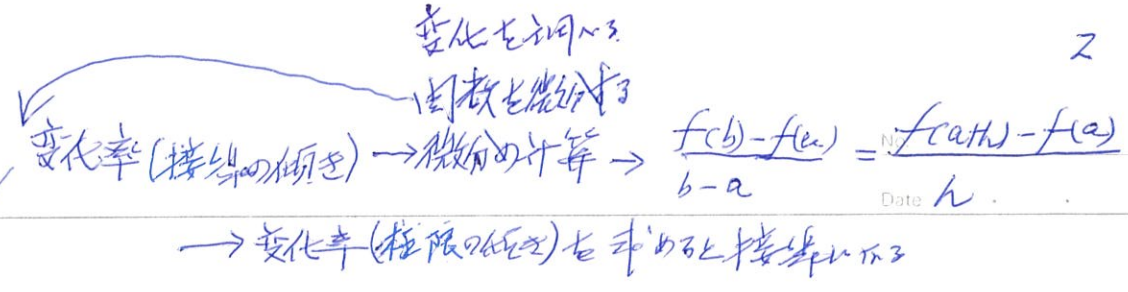 変化を調べる
2
関数を微分する
変化率(接線の傾き) → 微分の計算 → f(b)-f(a) / b-a = f(a+h)-f(a) / h
No.
Date
→ 変化率(極限の傾き)を求めると接線になる